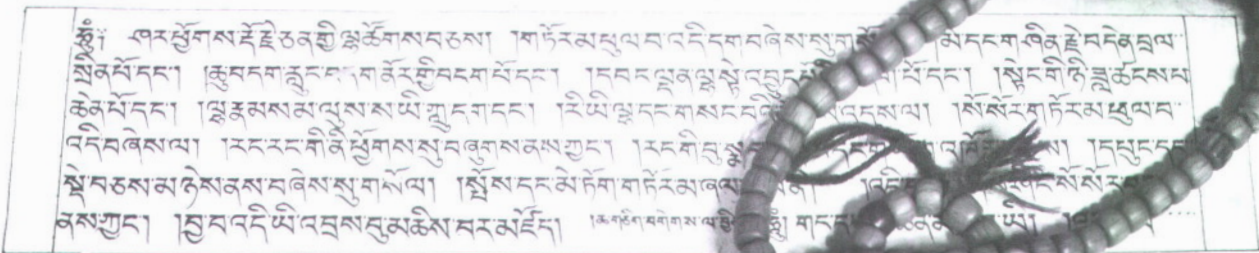 ཧཱུྃ༔ ཤར་ཕྱོགས་རྡོ་རྗེ་ཅན་གྱི་ལྷ་ཚོགས་བཅས། །གཏོར་མ་ཕུལ་བ་འདི་དག་བཞེས་སུ་ མེ་དང་གཤིན་རྗེ་བདེན་བྲལ་
སྲིན་པོ་དང་། །ཆུ་བདག་རླུང་ ནོར་གྱི་བདག་པོ་དང་། །དབང་ལྡན་ལྷ་སྟེ་ པོ་དང་། །སྟེང་གི་ཉི་ཟླ་ཚངས་པ་
ཆེན་པོ་དང་། །ལྷ་རྣམས་མ་ལུས་ས་ཡི་ཀླུ་དག་དང་། །རི་ཡི་ལྷ་དང་གསང་ ལ། །སོ་སོར་གཏོར་མ་ཕུལ་བ་
འདི་བཞེས་ལ། །རང་རང་གི་ནི་ཕྱོགས་སུ་བཞུགས་ནས་ཀྱང་། །རང་གི་བུ་ །དཔུང་དང་
སྡེ་བཅས་མ་ཉེས་ནས་བཞེས་སུ་གསོལ། །སྤོས་དང་མེ་ཏོག་གཏོར་མ་
ནས་ཀྱང་། །བྱ་བ་འདི་ཡི་འབྲས་བུ་མཆིས་པར་མཛོད། །ཆ་གཅིག་བགེགས་ལ་ ཡི།